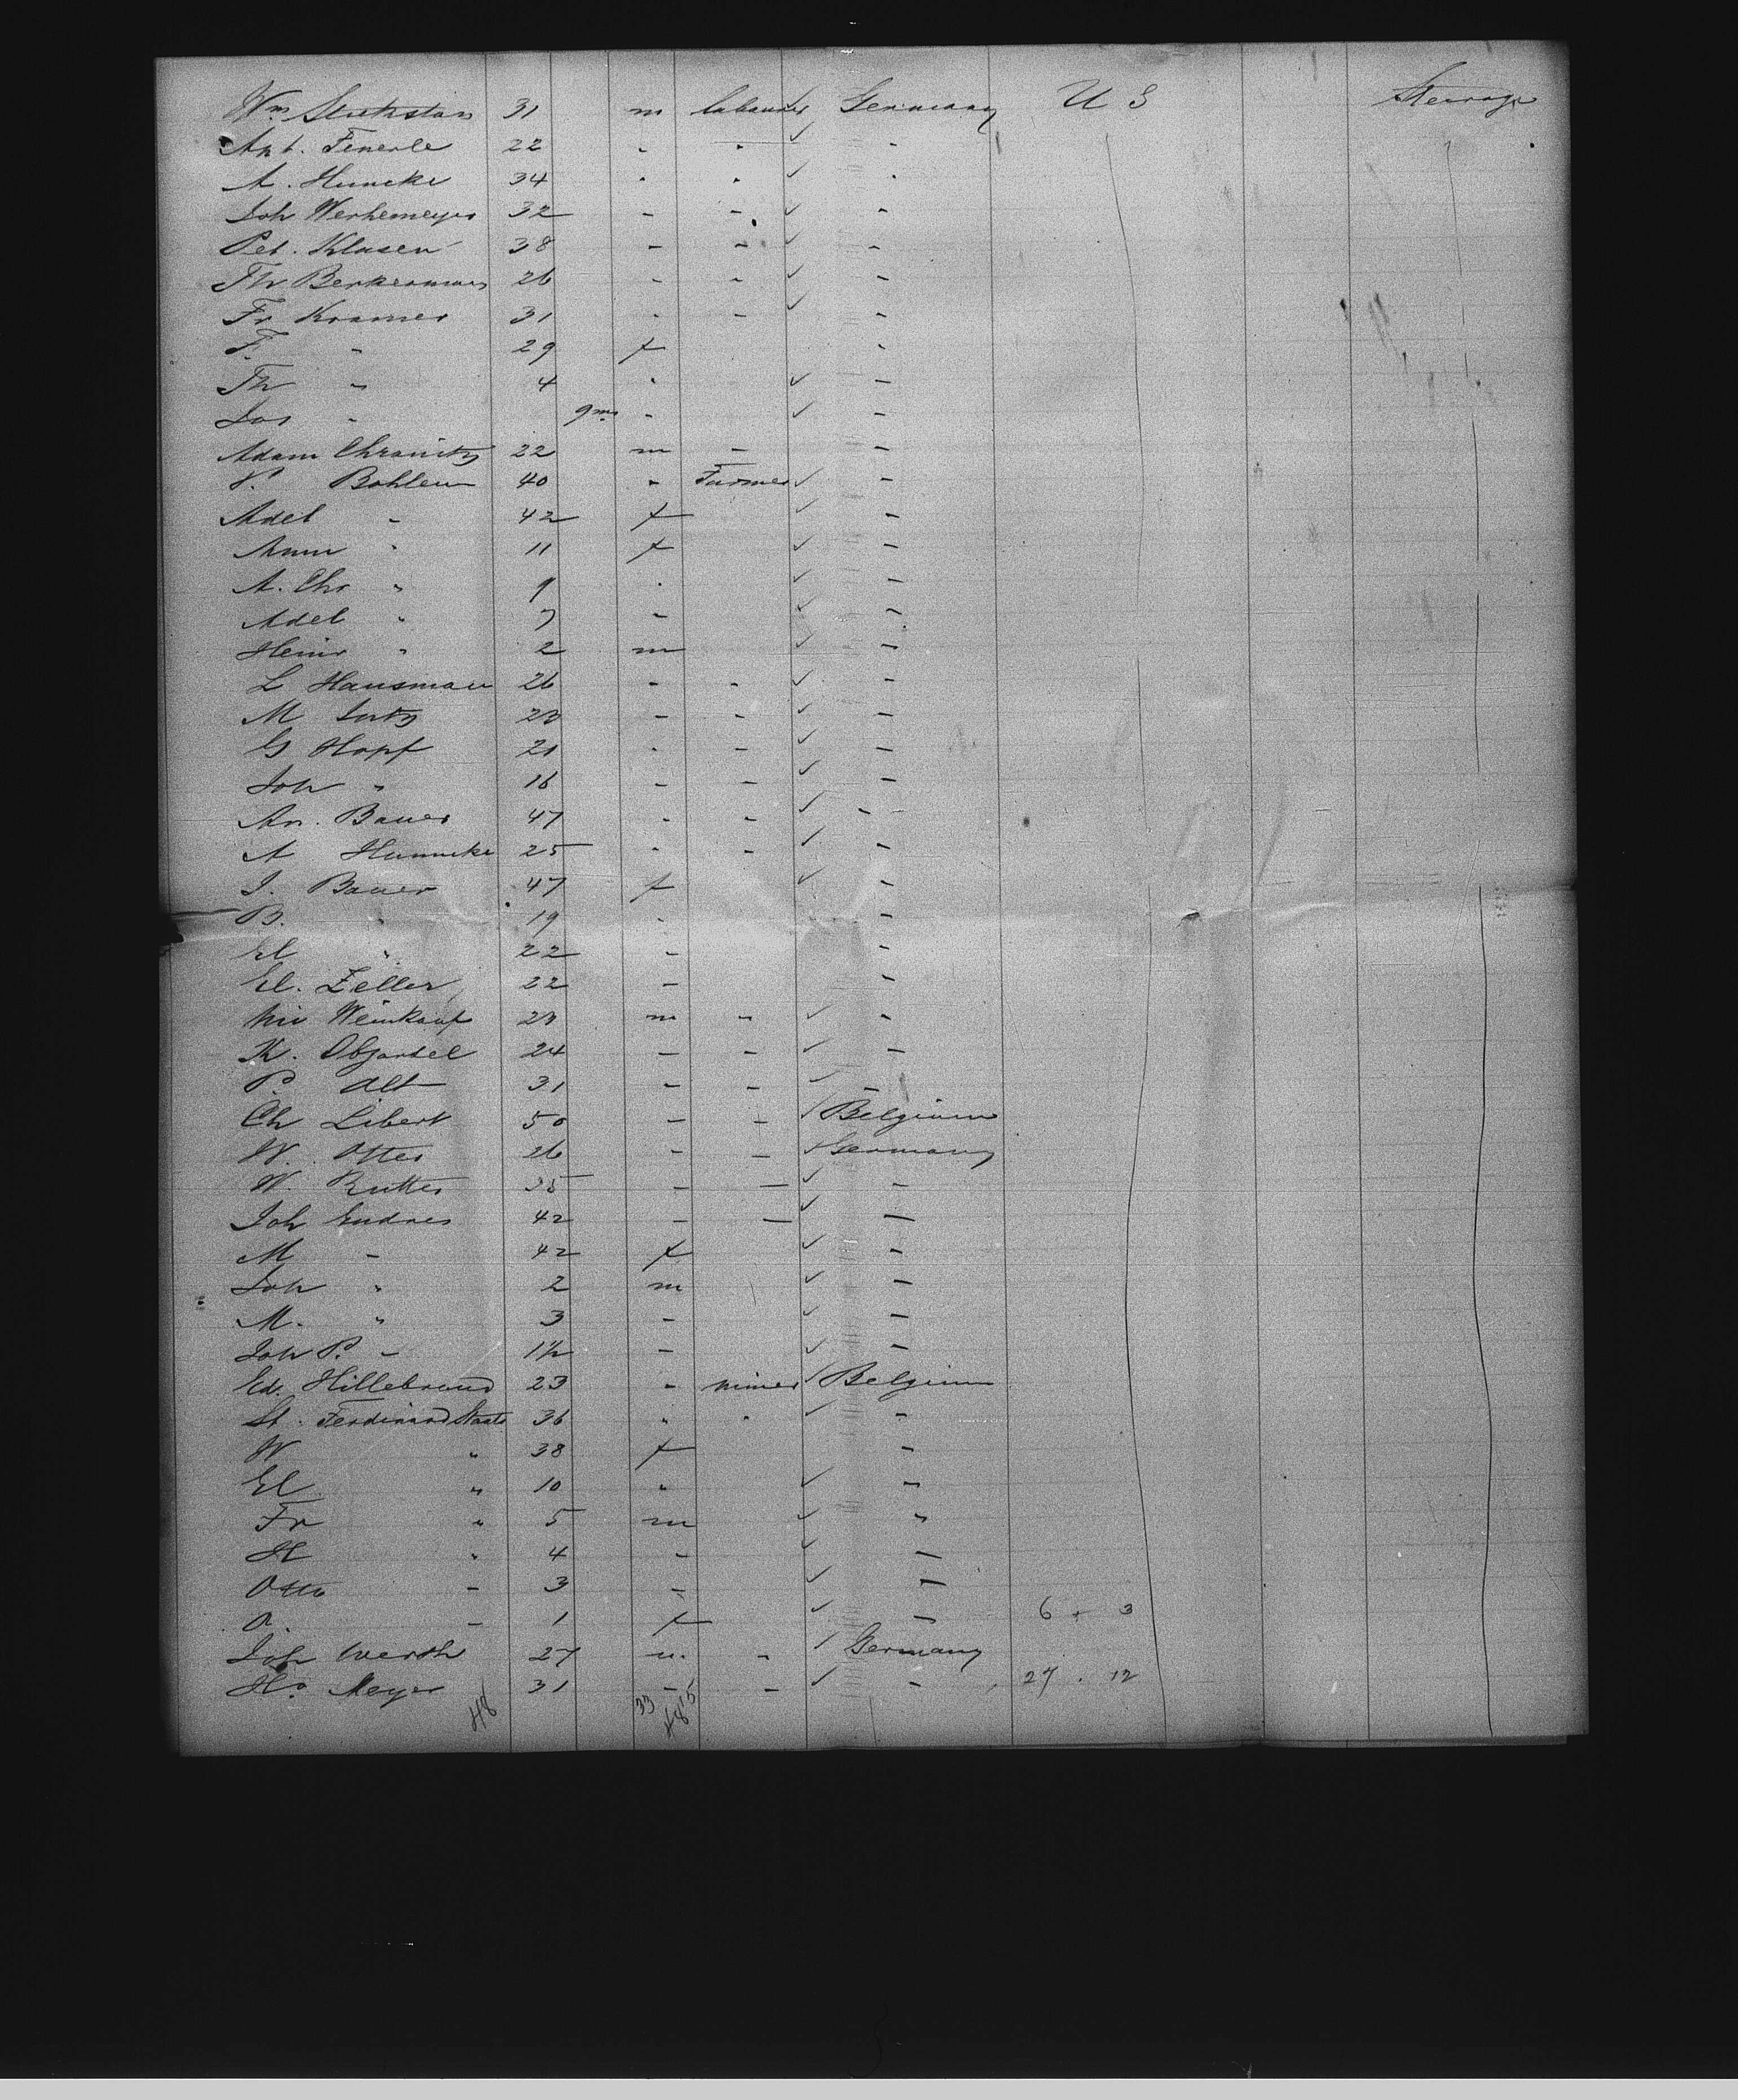 Wm 31 m labourer ✓ Germany U S Steerage
Ant. Feuerle 22 " " ✓ "
A. Huneke 34 " " ✓ "
Joh Werhemeyer 32 " " ✓ "
Pet. Klasen 38 " " ✓ "
Th Berkermann 26 " " ✓ "
Fr Kramer 31 " " ✓ "
F. " 29 f "
Th " 4 " ✓ "
Jos " 9ms " ✓ "
Adam 22 m " "
Bohlen 40 " Farmer ✓ "
Adel " 42 f ✓ "
Anna " 11 f ✓ "
A. Chr " 9 " ✓ "
Adel " 7 " ✓ "
Heinr " 2 m ✓ "
L Hausman 26 " " ✓ "
M " " ✓ "
G Hopf 21 " " ✓ "
Joh " 16 " " ✓ "
An. Bauer 47 " " ✓ "
A Hunneke 25 " " ✓ "
J. Bauer 47 f ✓ "
B. " 19 " "
El " 22 " "
El. Zeller 22 " "
Weinkauf m " ✓ "
K. 24 " " ✓ "
P. Alt 31 " " ✓ "
Ch Libert 50 " " ✓ Belgium
W. Otter 26 " " ✓ Germany
W. Rutter 35 " " ✓ "
Joh Endres 42 " " ✓ "
M " 42 f ✓ "
Joh " 2 m ✓ "
M. " 3 " ✓ "
Joh P. " 1½ " ✓ "
Ed. Hillebrand 23 " miner ✓ Belgium
St. Ferdinand Staats 36 " " ✓ "
W " 38 f "
El " 10 " ✓ "
Fr " 5 m ✓ "
H " 4 " ✓ "
Otto " 3 " ✓ "
A. " 1 f ✓ " 6 + 3
Joh Werth 27 m " ✓ Germany
Hr Meyer 31 " " ✓ " 27 . 12
48 33 15 48